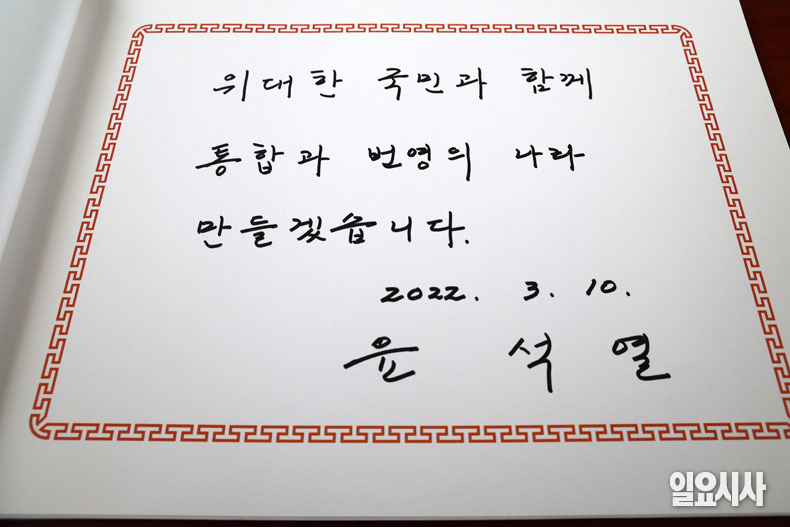 위대한 국민과 함께
통합과 번영의 나라
만들겠습니다.
2022. 3. 10.
윤 석 열
일요시사